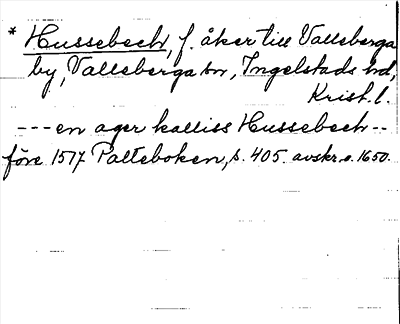 * Hussebech, f. åker till Valleberga
by, Valleberga sn, Ingelstads hd,
Krist. l.
--- en ager kalliss Hussebech --
före 1517 Palteboken, s. 405. avskr. o. 1650.